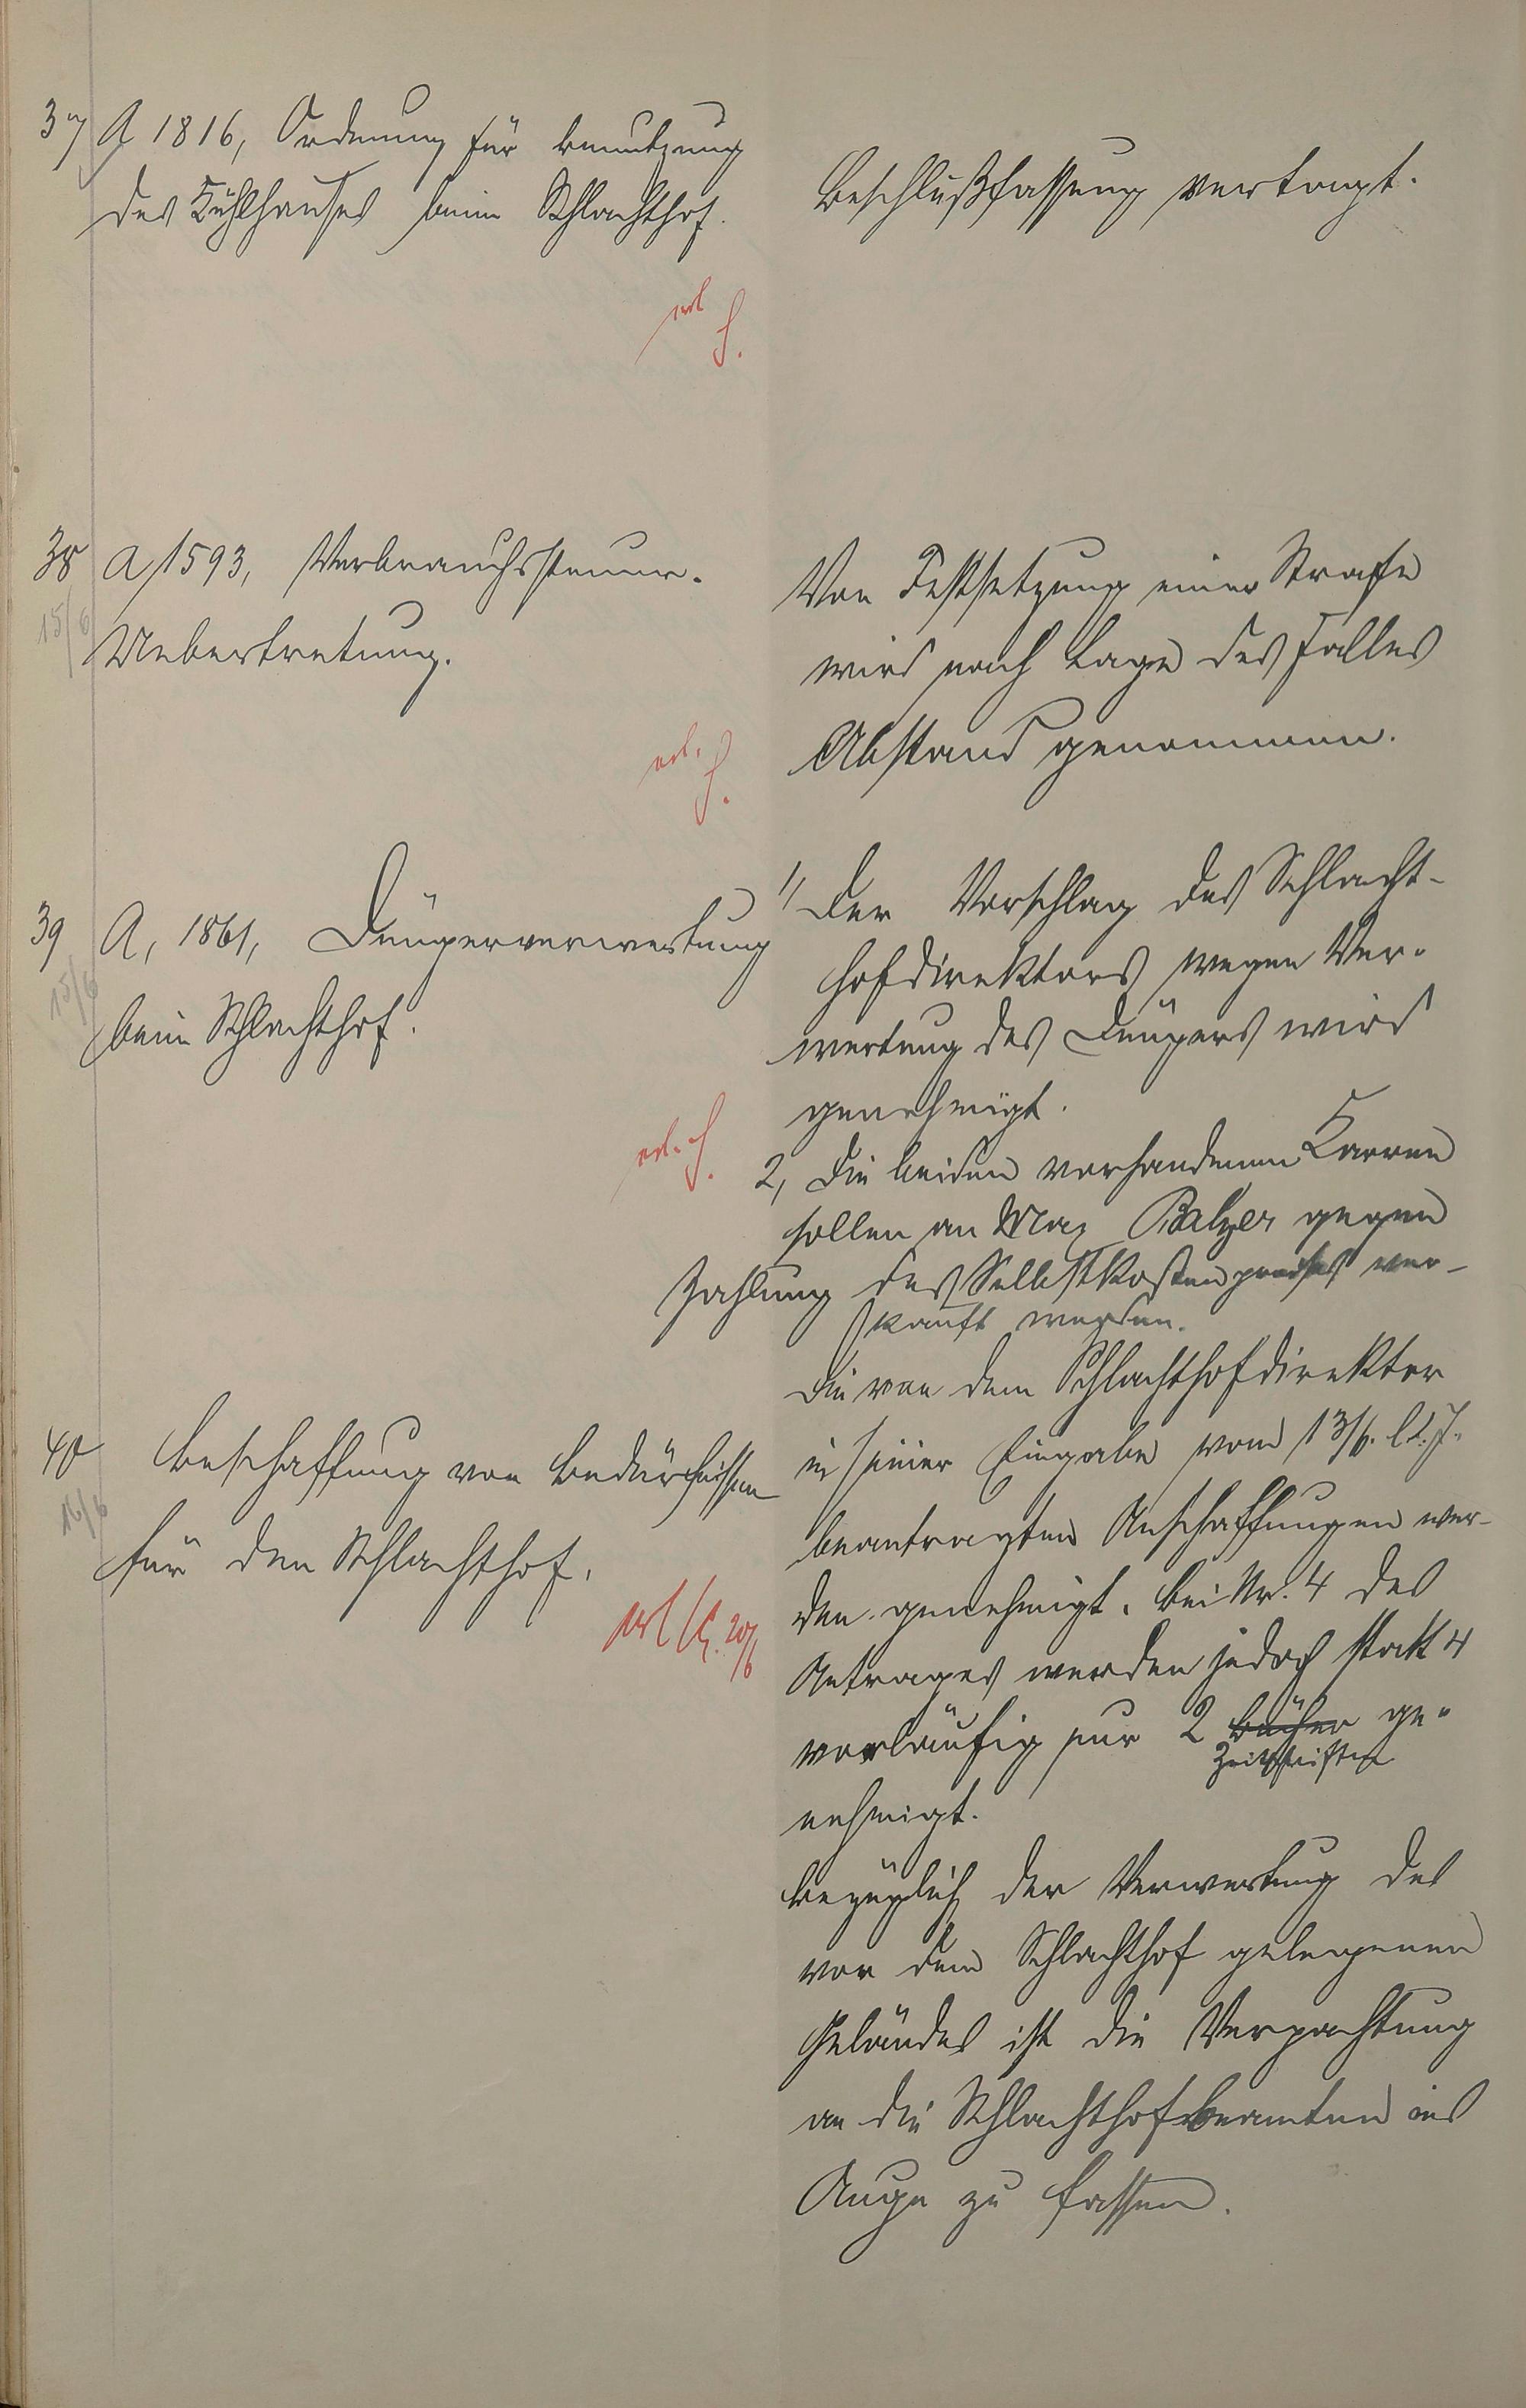 37 A 1816, Ordnung für Benutzung
des Kühlhauses beim Schlachthof.
Beschlußfassung vertagt.
erl
38 A 1593, Verbrauchssteuer-
15/6
Uebertretung.
Von Festsetzung einer Strafe
wird nach Lage des Falles
Abstand genommen.
erl.
39 A, 1861, Düngerverwertung
15/6
beim Schlachthof.
erl.
1, Der Vorschlag des Schlacht-
hofdirektors wegen Ver-
wertung des Düngers wird
genehmigt.
2, Die beiden vorhandenen Karren
sollen an Max Balzer gegen
Zahlung des Selbstkostenpreises ver-
kauft werden.
40 Beschaffung von Bedürfnissen
16/6
für den Schlachthof.
erl 20/6
Die von dem Schlachthofdirektor
in seiner Eingabe vom 13/6. lf. J.
beantragten Anschaffungen wer-
den genehmigt. Bei Nr. 4 des
Antrages werden jedoch statt 4
vorläufig nur 2 Bücher ge-
Zeitschriften
nehmigt.
Bezüglich der Verwertung des
vor dem Schlachthof gelegenen
Geländes ist die Verpachtung
an die Schlachthofbeamten ins
Auge zu fassen.